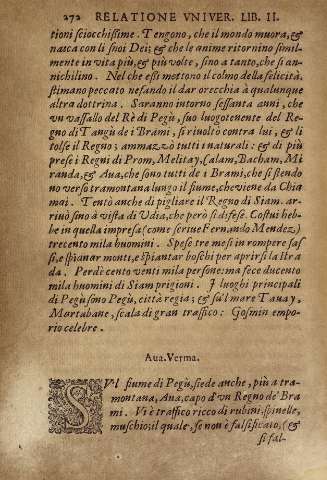 272 RELATIONE VNIVER. LIB. II.
tioni sciocchissime. Tengono, che il mondo muora, &
nasca con li suoi Dei; & che le anime ritornino simil-
mente in vita più, & più volte, sino a tanto, che si an-
nichilino. Nel che essi mettono il colmo della felicità.
stimano peccato nefando il dar orecchia à qualunque
altra dottrina. Saranno intorno sessanta anni, che
vn vassallo del Rè di Pegù, suo luogotenente del Re-
gno di Tangù de i Brami, si riuoltò contra lui, & li
tolse il Regno; ammazzò tutti i naturali: & di più
prese i Regni di Prom, Melitay, Calam, Bacham, Mi
randa, & Aua, che sono tutti de i Brami, che si stendo
no verso tramontana lungo il fiume, che viene da Chia
moi. Tentò anche di pigliare il Regno di Siam. ar-
riuò sino à vista di Vdia, che però si difese. Costui heb-
be in quella impresa (come scriue Fernando Mendez)
trecento mila huomini. Spese tre mesi in rompere sas
si, e spianar monti, e spiantar boschi per aprirsi la stra
da. Perdè cento venti mila persone: ma fece ducento
mila huomini di Siam prigioni. I luoghi principali
di Pegù sono Pegù, città regia; & su'l mare Tauay,
Martabane, scala di gran traffico: Gosmin empo-
rio celebre.
Aua. Verma.
SV'l fiume di Pegù, siede anche, più a tra-
montana, Aua, capo d'vn Regno de' Bra
mi. Vi è traffico ricco di rubini, spinelle,
muschio; il quale, se non è falsificato, (&
si fal-